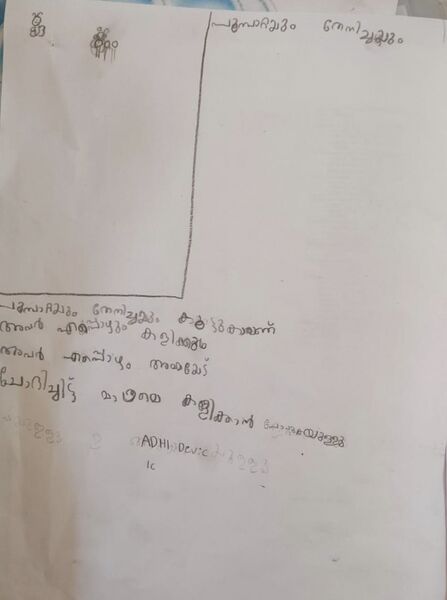 പൂമ്പാറ്റയും തേനീച്ചയും
പൂമ്പാറ്റയും തേനിച്ചയും കൂട്ടുകാരാണ്
അവർ എപ്പൊഴും കളിക്കും
അവർ എപ്പൊഴും അമ്മയോട്
ചോദിച്ചിട്ട് മാത്രമെ കളിക്കാൻ പോകുകയുള്ളു
ADHI Dev.c
1c